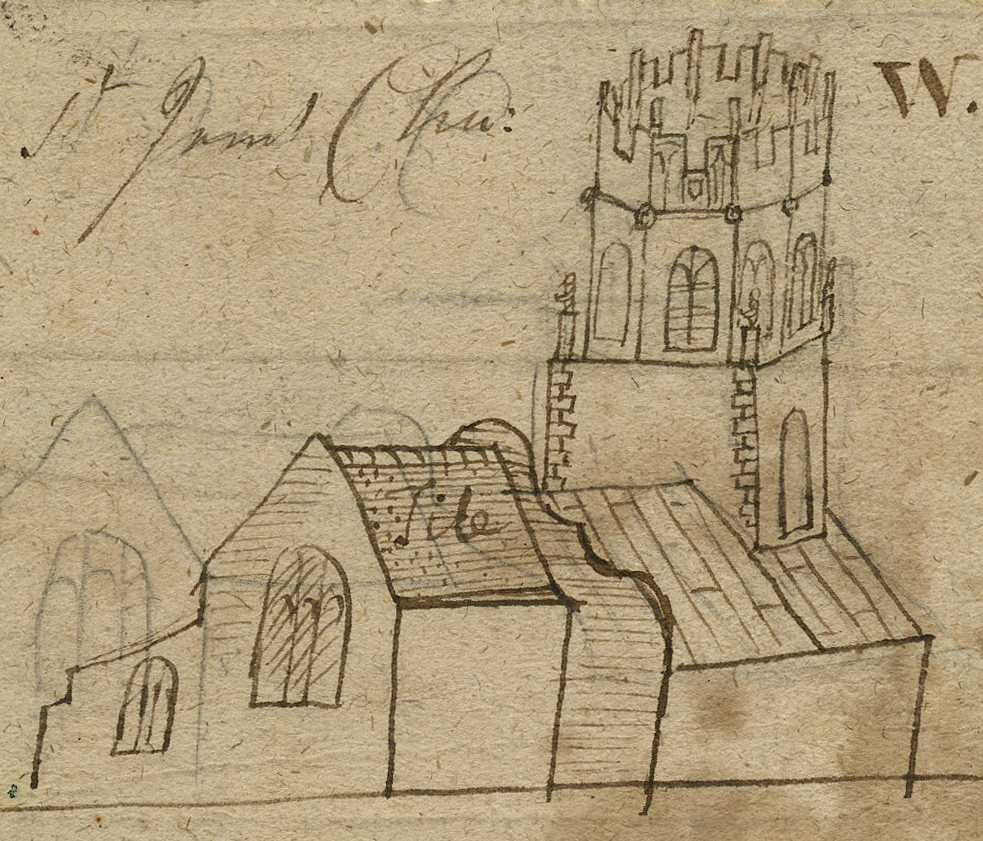 St Jam's Chu:
W.
Tile